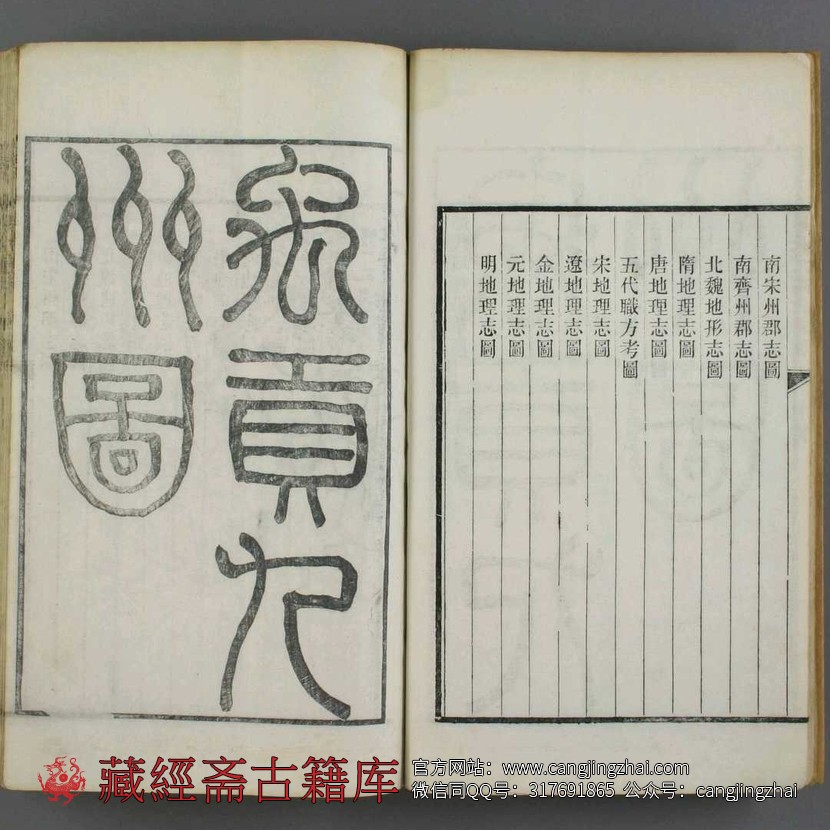 南宋州郡志圖
南齊州郡志圖
北魏地形志圖
隋地理志圖
唐地理志圖
五代職方考圖
宋地理志圖
遼地理志圖
金地理志圖
元地理志圖
明地理志圖
禹貢九
州圖
藏經斋古籍库
官方网站：www.cangjingzhai.com
微信同QQ号：317691865 公众号：cangjingzhai